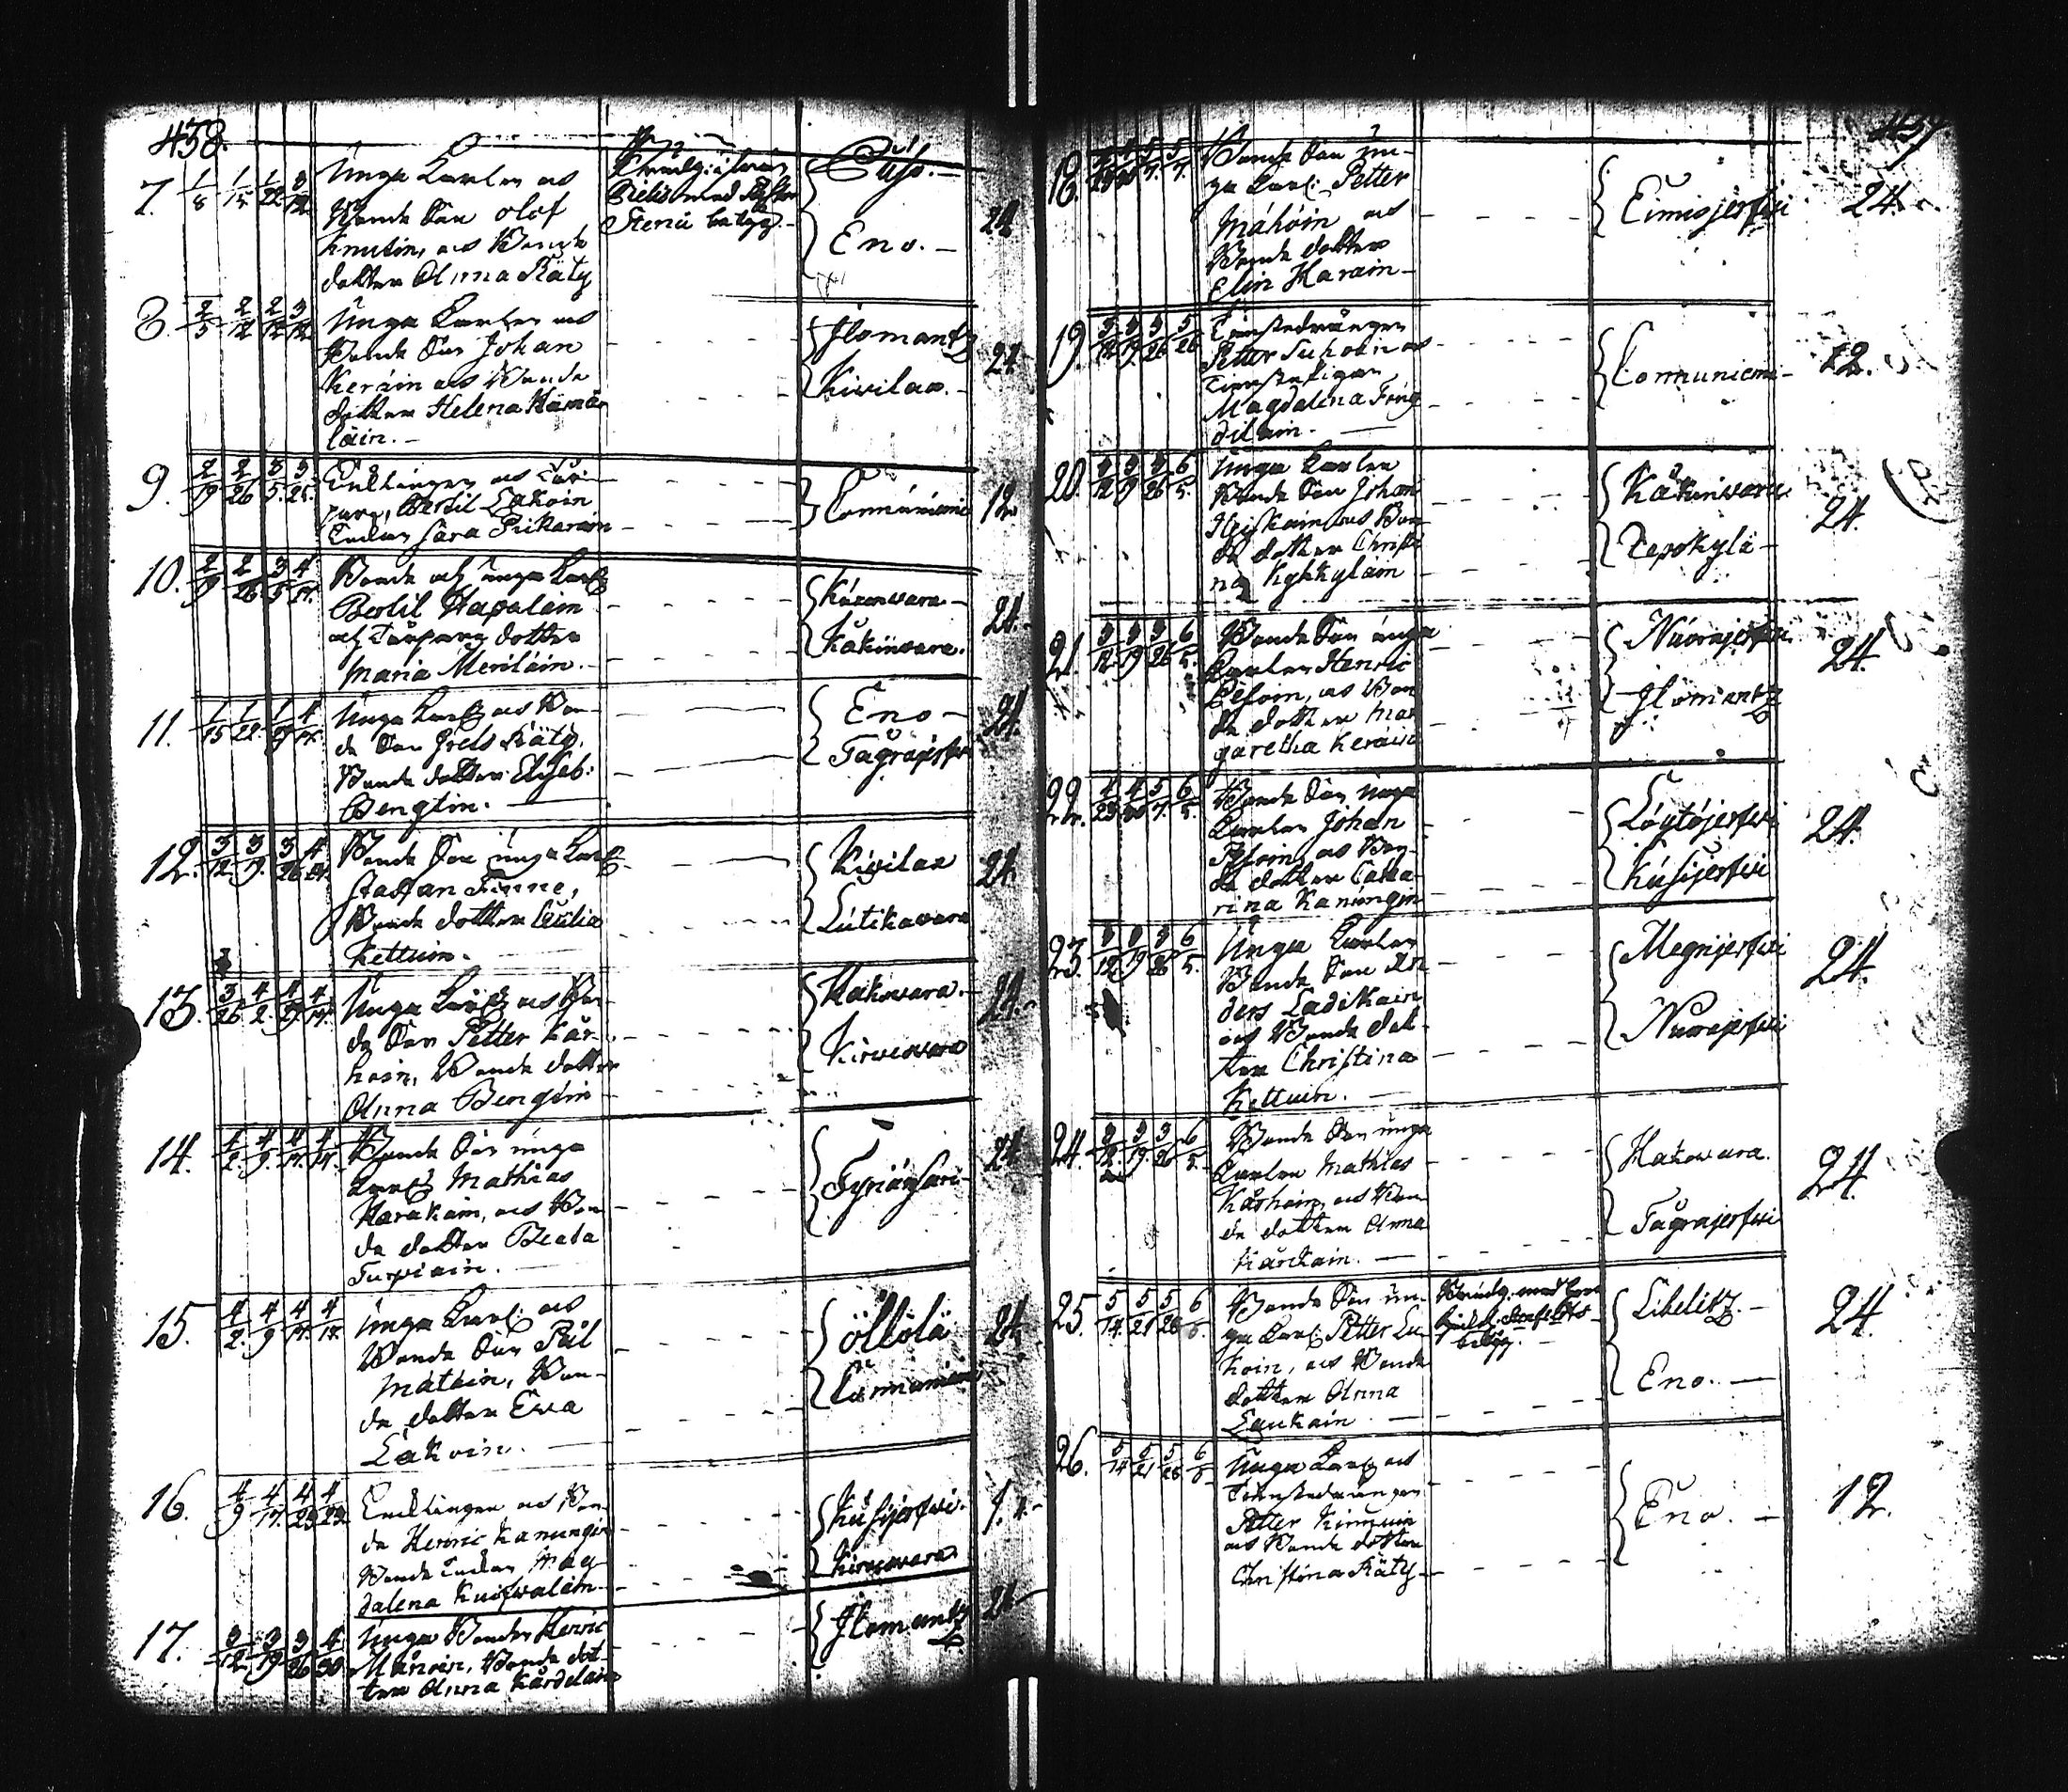 458.
7. 1/8 1/15 1/22 3/12 Unga Karlen och
Bonde Son Olof
Knutin, och Bonde
dotter Anna Räty
Eno. —
24
8. 2/5 2/12 2/12 3/12 Unga Karlen och
Bonde Son Johan
Keräin och Bonde
dotter Helena Hämä-
läin. —
Ilomantz
Kivilax. —
24
9. 2/19 2/26 3/5 3/25 Enklingen och Tor-
pare, Bertil Eakoin
Enkan Sara Pikarain
Connúniemi
12
10. 2/19 2/26 3/5 4/17. Bonde och unga Karl
Bertil Hapalain
och Torpare dotter
Maria Meriläin. —
Käkönvara —
24.
11. 1/15 1/22 1/29 4/17. Unga Karl och Bon-
de Son Grels Räty.
Bonde dotter Elisab:
Bengtin. —
Eno —
24.
12. 3/12. 3/19. 3/26 Bonde Son unga Karl
Staffan Finne,
Bonde dotter Cecilia
Kettuin. —
Kivilax
Lútikavara
24.
13. 3/26 4/2. 4/9. 4/17. Unga Karl och Bon-
de Son Petter Kär-
hain, Bonde dotter
Anna Bengtin
Hakovara. —
Kirvesvara
24.
14. 4/2. 4/9. 4/17. 4/17. Bonde Son unga
Karl Mathias
Harakain, och Bon-
de dotter Beata
Turpiain. —
24
15. 4/2. 4/9 4/17. 4/17. Unga Karl: och
Bonde Son Pål
Matkin, Bon-
de dotter Eva
Eakoin. —
Öllölä
24.
16. 4/9 4/17. 4/23 4/23. Enklingen och Bon-
de Henric Kanungin
Bonde Enkan Mag
dalena Kuifvalain —
Kúsijerfvi.
Kirvesvara
17. 3/12 3/19 3/26 4/30 Unga Bonden Henric
Månoin, Bonde dot-
ter Anna Kärdelain
Ilomantz
24 —
18. Bonde Son un-
ga Karl: Petter
Máhöin och
Bonde dotter
Elin Harain —
Eimisjerfvi
24.
19. 3/12. 3/19. 3/26 5/26 Tjenstedrängen
Petter Suhoin och
Tjenstepigan
Magdalena Ting
dilain. —
Connuniemi —
12.
20. 3/12 3/19 3/26 6/5. Unga Karlen
Bonde Son Johan
Heiskain och Bon-
de dotter Christi
na Kykkyläin
Käkinvara
Repokylä —
24.
21. 3/12. 3/19 3/26 6/5. Bonde Son unga
Karlen Henric
Pesoin, och Bon
de dotter Mar
garetha Keräin
Núorajerfvi
Ilomantz
24.
22. 4/23 4/30 5/7. 6/5. Bonde Son unga
Karlen Johan
och Bon-
de dotter Catha-
rina Kanúngin
Löytöjerfvi
Kúsijerfvi
24.
23. 3/12. 3/19 3/26 6/5. Unga Karlen
Bonde Son An
ders Ladikain
och Bonde dot-
ter Christina
Kettuin. —
Megrijerfvi
Nuorajerfvi
24.
24. 3/12. 3/19. 3/26 6/5. Bonde Son unga
Karlen Mathias
Kärhain, och Bon
de dotter Anna
Karckain. —
Hakovara.
Tågrajerfvi
24.
25. 5/14. 5/21 5/28 6/6. Bonde Son un-
ga Karl: Petter Lu
koin, och Bonde
dotter Anna
Laukain —
Libelitz. —
Eno. —
24.
26. 5/14 5/21 5/28 6/6 Unga Karl och
Tjenstedrängen
Petter Kinnuin
och Bonde dotter
Christina Räty —
Eno. —
12.